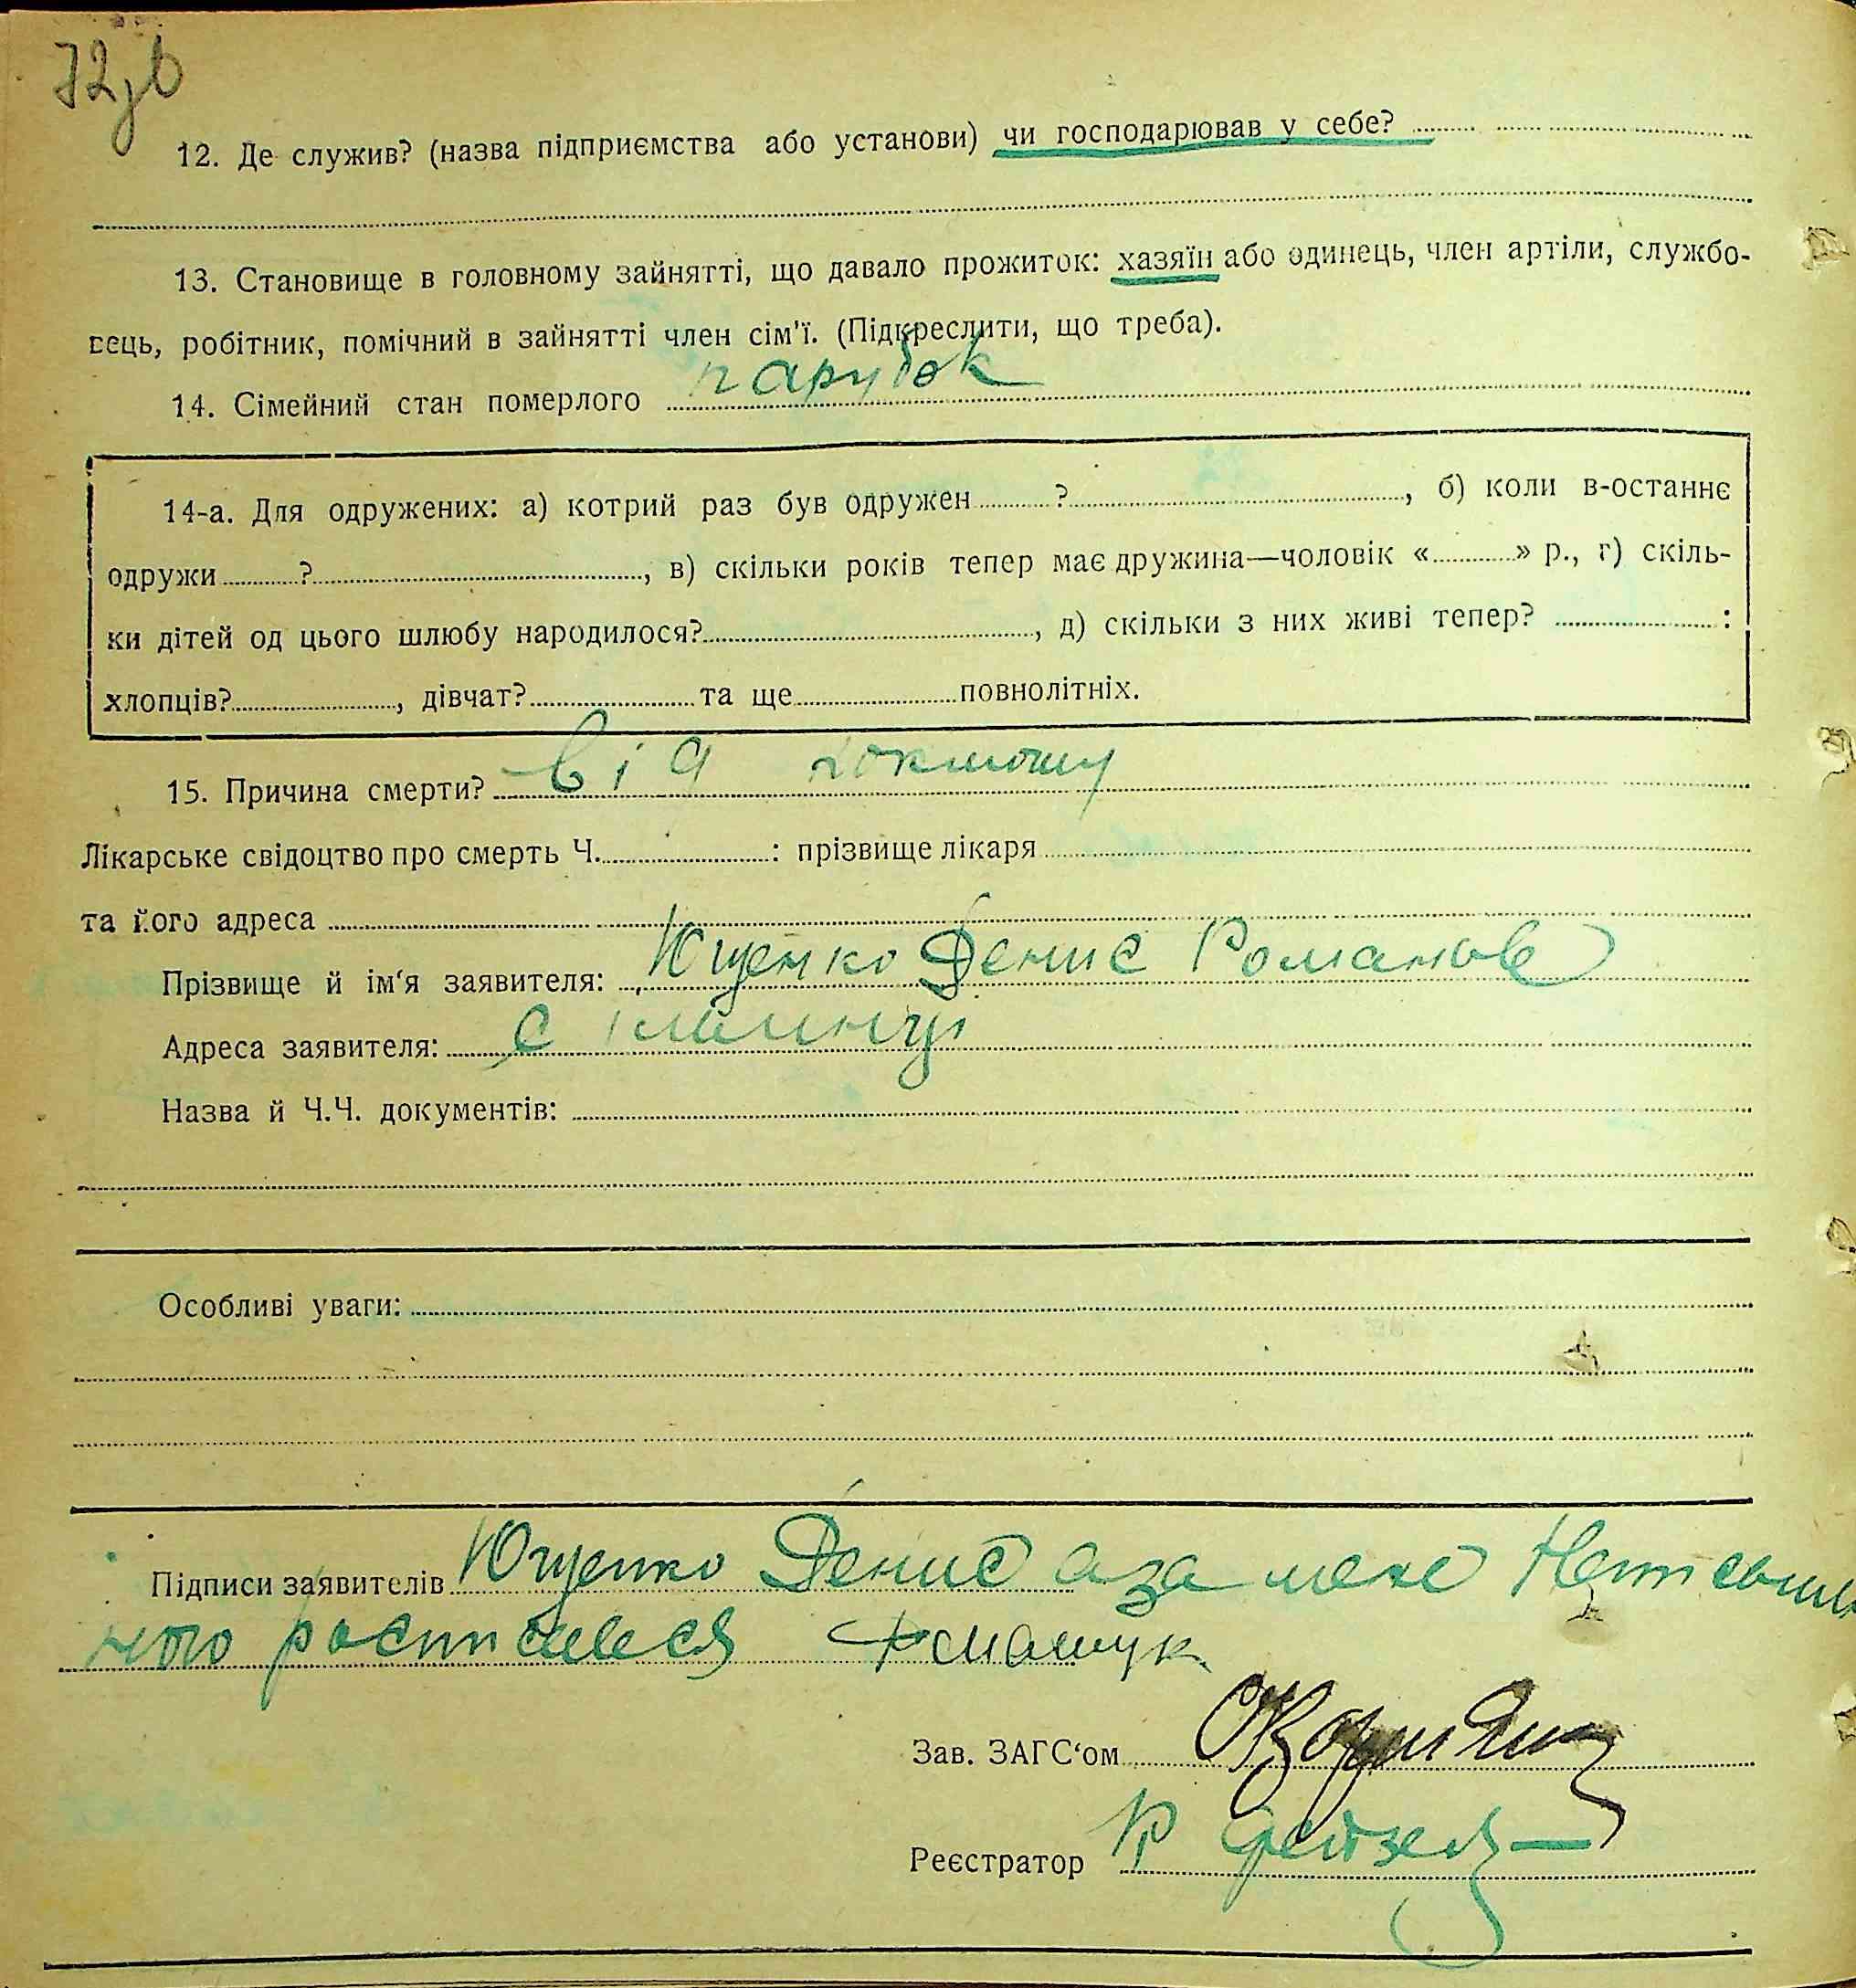 12. Де служив? (назва підприємства або установи) чи господарював у себе?
13. Становище в головному зайнятті, що давало прожиток: хазяїн або одинець, член артіли, службо-
вець, робітник, помічний в зайнятті член сім'ї. (Підкреслити, що треба).
14. Сімейний стан померлого парубок
14-а. Для одружених: а) котрий раз був одружен ? , б) коли в-останнє
одружи ? , в) скільки років тепер має дружина—чоловік « » р., г) скіль-
ки дітей од цього шлюбу народилося? , д) скільки з них живі тепер? :
хлопців? , дівчат? та ще повнолітніх.
15. Причина смерти? від коклюшу
Лікарське свідоцтво про смерть Ч. : прізвище лікаря
та його адреса
Прізвище й ім'я заявителя: Ющенко Денис Романов
Адреса заявителя: с
Назва й Ч.Ч. документів:
Особливі уваги:
Підписи заявителів Ющенко Денис а за
Зав. ЗАГС'ом
Реєстратор